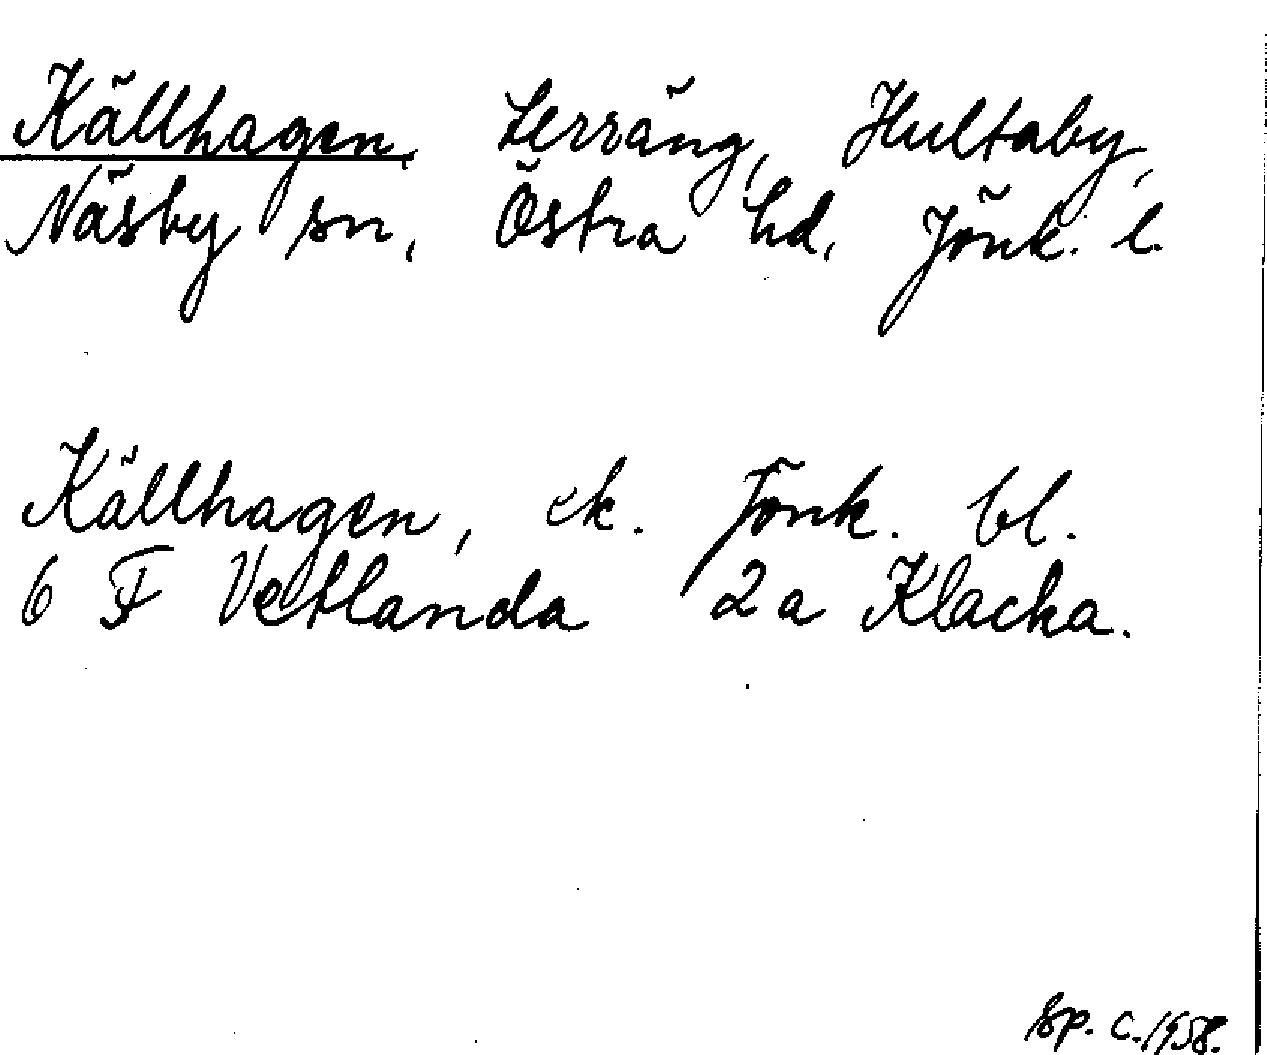 Källhagen, Lerräng, Hultaby,
Näsby sn, Östra hd, Jönk. l.
Källhagen, ek. Jönk. bl.
6 F Vetlanda 2a Klacka.
sp. c. 1958.